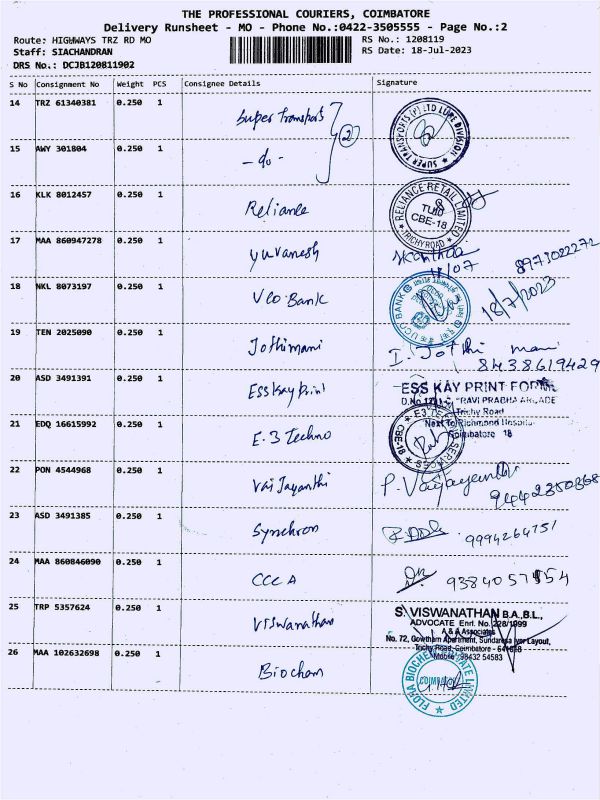 THE PROFESSIONAL COURIERS, COIMBATORE
Delivery Runsheet - MO - Phone No.:0422-3505555 - Page No.:2
Route: HIGHWAYS TRZ RD MO RS No.: 1208119
Staff: SIACHANDRAN RS Date: 18-Jul-2023
DRS No.: DCJB120811902
S No Consignment No Weight PCS Consignee Details Signature
14 TRZ 61340381 0.250 1 Super Transports (2) SUPER TRANSPORTS (P) LTD LORE DIVISION
15 AWY 301804 0.250 1 - do -
16 KLK 8012457 0.250 1 Reliance RELIANCE RETAIL LIMITED CBE-18 TRICHY ROAD
17 MAA 860947278 0.250 1 yuvanesh 18/07 8973022272
18 NKL 8073197 0.250 1 Uco Bank UCO BANK 18/7/2023
19 TEN 2025090 0.250 1 Jothimani I. Jothi mani
8438619429
20 ASD 3491391 0.250 1 Ess Kay Print ESS KAY PRINT FORMS
"RAVI PRABHA ARCADE"
Trichy Road
21 EDQ 16615992 0.250 1 E.3 Techno Next To Richmond Hospital
Coimbatore 18
E3 SERVICES CBE-18
22 PON 4544968 0.250 1 Vaijayanthi P. Vaijayanthi
9442350868
23 ASD 3491385 0.250 1 Synchron 9994264751
24 MAA 860846090 0.250 1 CCC A
25 TRP 5357624 0.250 1 Viswanathan S. VISWANATHAN B.A.,B.L.,
ADVOCATE Enrl. No. 228/1999
A & A Associates
No. 72, Gowtham Apartment, Sundaresa Iyer Layout,
Trichy Road, Coimbatore - 641018
Mobile: 98432 54583
26 MAA 102632698 0.250 1 Biocham COIMBATORE LIMITED